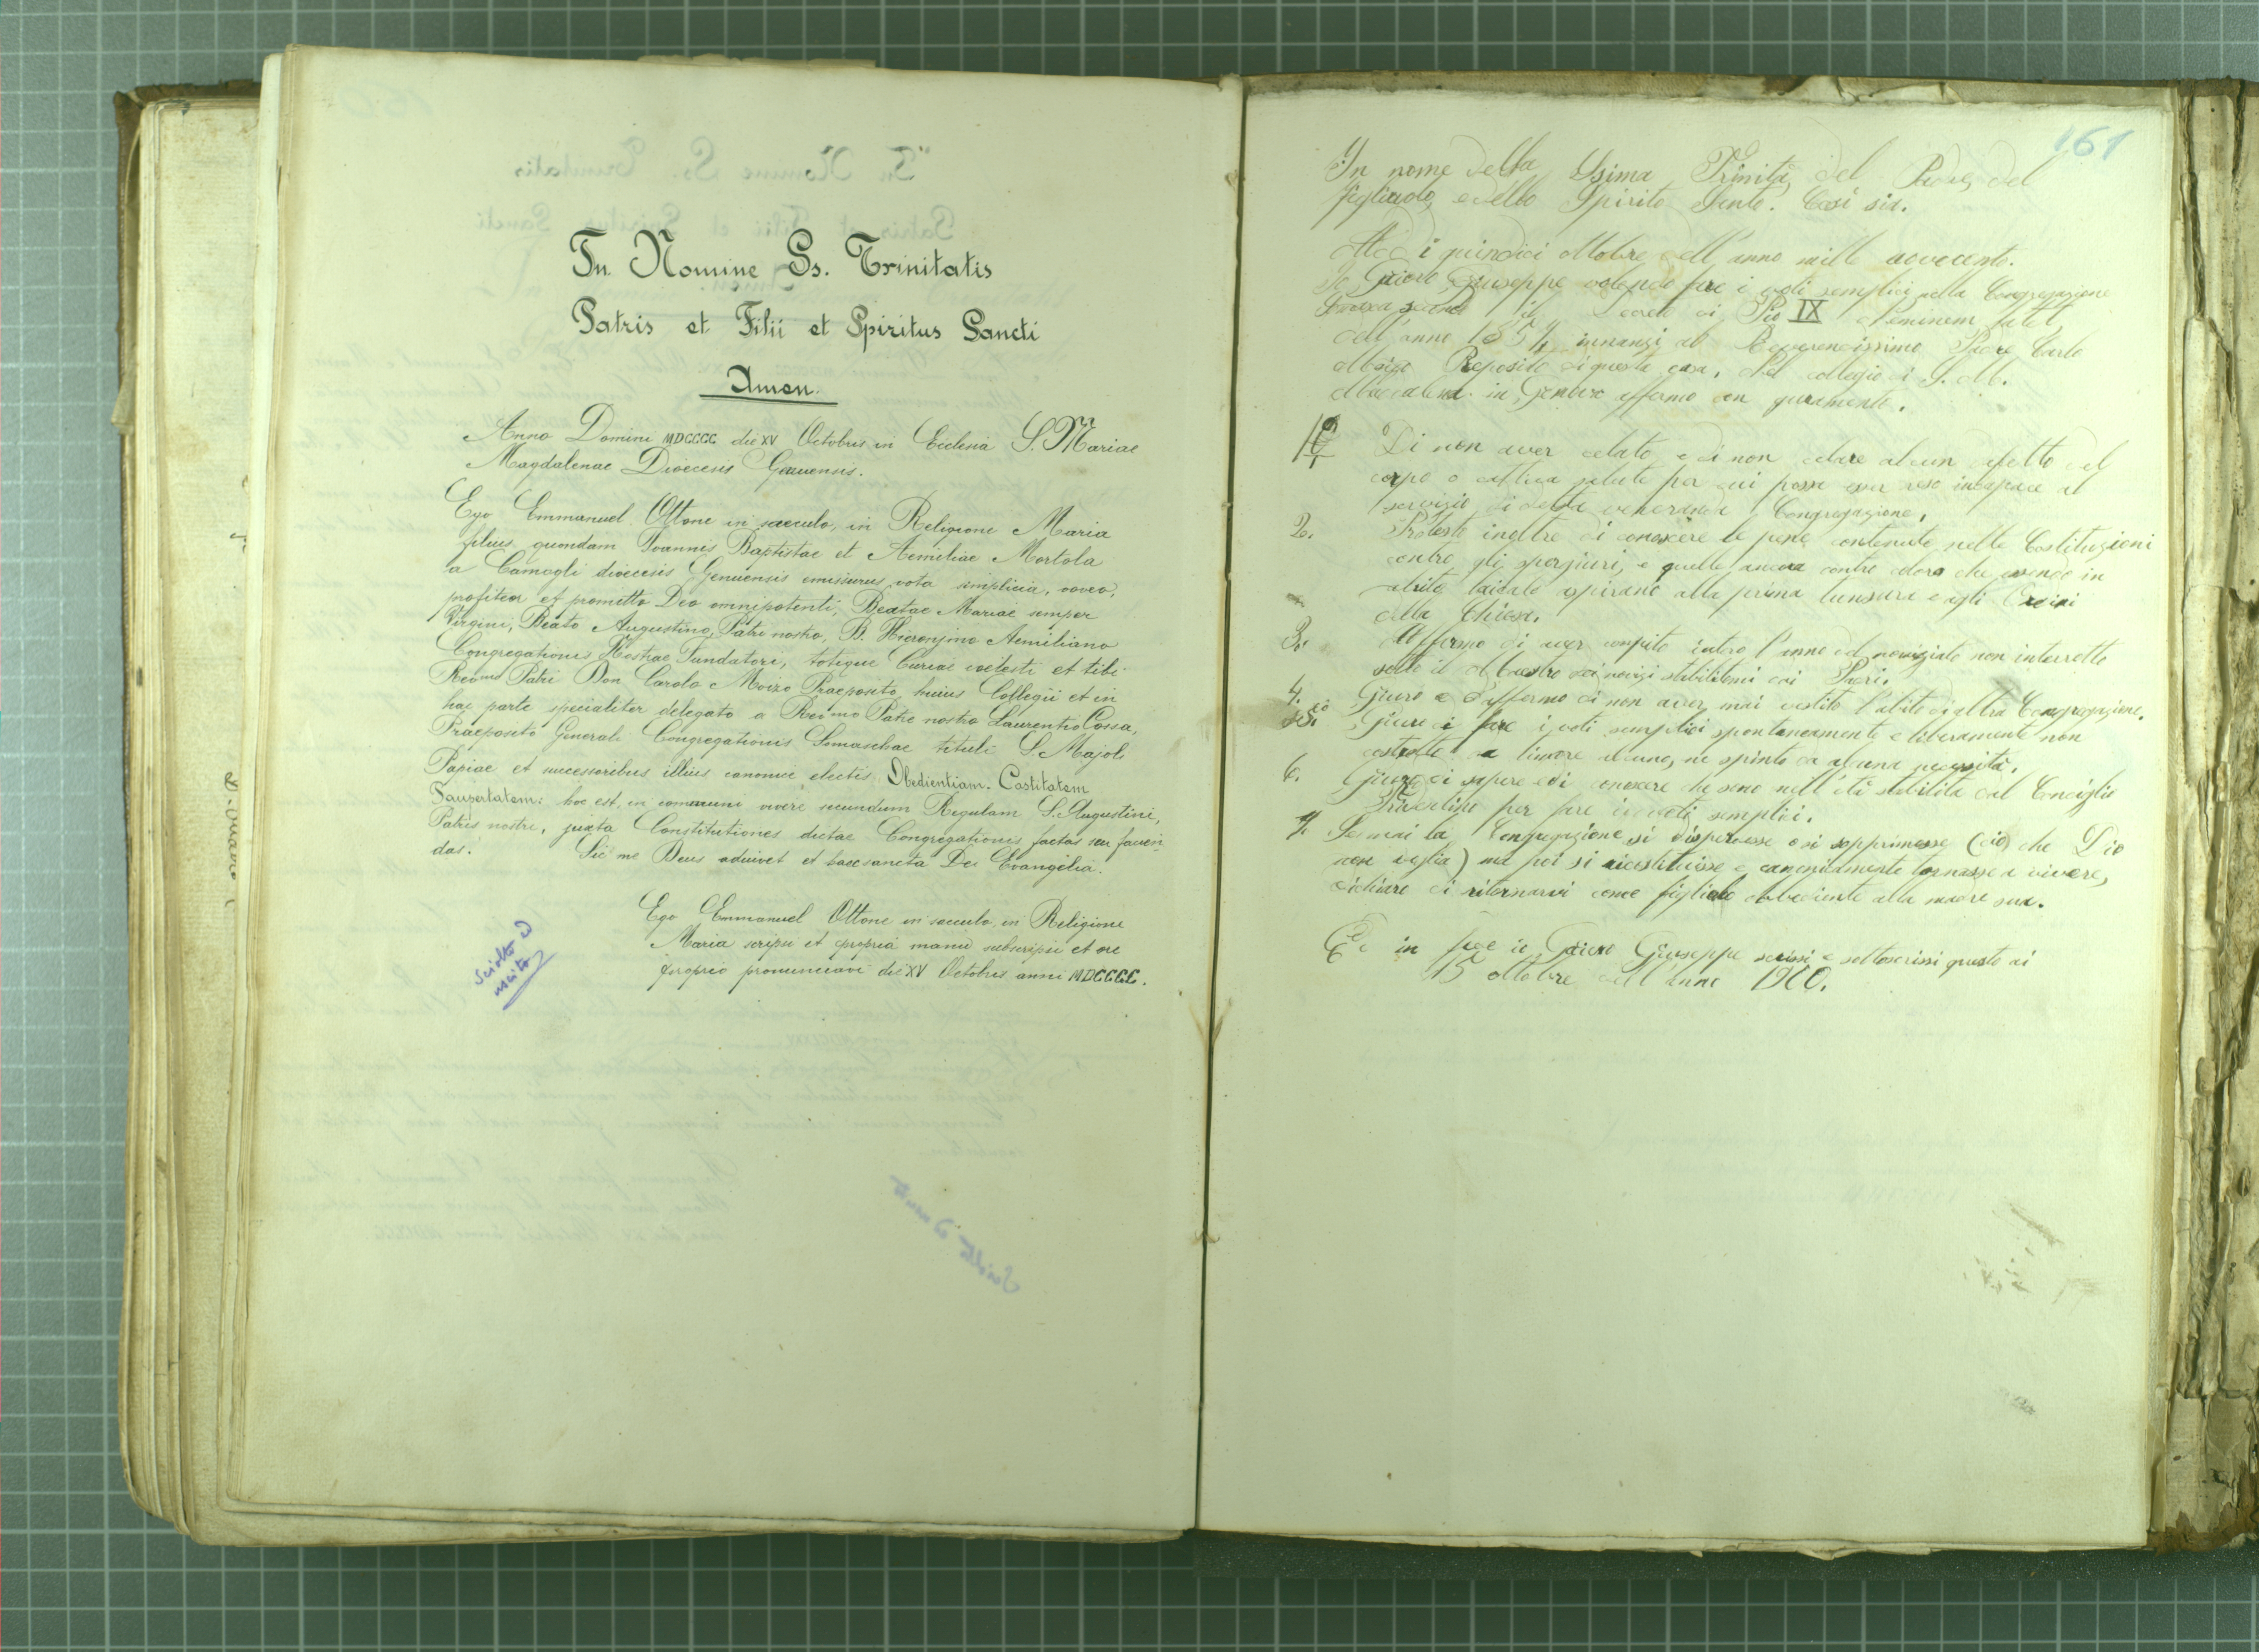 In Nomine Ss. Trinitatis
Patris et Filii et Spiritus Sancti
Amen.
Anno Domini MDCCCC die XV Octobris in Ecclesia S. Mariae
Magdalenae Dioecesis Genuensis.
Ego Emmanuel Ottone in saeculo, in Religione Maria
filius quondam Ioannis Baptistae et Aemiliae Mortola
a Camogli dioecesis Genuensis emissurus vota simplicia, voveo,
profiteor et promitto Deo omnipotenti, Beatae Mariae semper
Virgini, Beato Augustino, Patri nostro, B. Hieronymo Aemiliano
Congregationis Nostrae Fundatori, totique Curiae coelesti et tibi
Rev.mo Patri Don Carolo Moizo Praeposito huius Collegii et in
hac parte specialiter delegato a Rev.mo Patre nostro Laurentio Cossa,
Praeposito Generali Congregationis Somaschae tituli S. Majoli
Papiae et successoribus illius canonice electis Obedientiam. Castitatem
Paupertatem: hoc est, in communi vivere secundum Regulam S. Augustini,
Patris nostri, juxta Constitutiones dictae Congregationis factas seu facien
das. Sic me Deus adiuvet et haec sancta Dei Evangelia.
Ego Emmanuel Ottone in saeculo, in Religione
Maria scripsi et propria manu subscripsi et ore
proprio pronunciavi die XV Octobris anni MDCCCC.
Sciolto d
uscito
161
In nome della SSima Trinità, del Padre, del
figliuolo, e dello Spirito Santo. Così sia.
Addì quindici ottobre dell'anno mille novecento.
Io Giuseppe volendo fare i voti semplici nella Congregazione
il Decreto di Pio IX Neminem latet
dell'anno 1857, innanzi al Reverendissimo Padre Carlo
Moizo Preposito di questa casa, del collegio di S. M.
Maddalena in Genova affermo con giuramento.
1º Di non aver celato e di non celare alcun difetto del
corpo o cattiva salute per cui possa esser reso incapace al
servizio di detta veneranda Congregazione,
2. Protesto inoltre di conoscere le pene contenute nelle Costituzioni
contro gli spergiuri, e quelle ancora contro coloro che essendo in
abito laicale aspirano alla prima tunsura e agli Ordini
della Chiesa.
3. Affermo di aver compito intero l'anno del noviziato non interrotto
sotto il Maestro dei novizi stabilitomi dai Padri.
4. Giuro e affermo di non aver mai vestito l'abito di altra Congregazione.
5. Giuro di fare i voti semplici spontaneamente e liberamente non
costretto da timore alcuno, ne spinto da alcuna necessità.
6. Giuro di sapere e di conoscere che sono nell'età stabilita dal Conciglio
Tridentino per fare i voti semplici.
7. Se mai la Congregazione si disperdesse o si sopprimesse (ciò che Dio
non voglia) ma poi si ricostituisse e canonicamente tornasse a vivere,
di ritornarvi come figliolo obbediente alla madre sua.
Ed in fede io Giuseppe scrissi e sottoscrissi questo dì
15 ottobre dell'anno 1900.